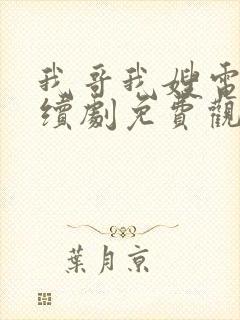 我哥我嫂電
續劇免費觀
葉月京